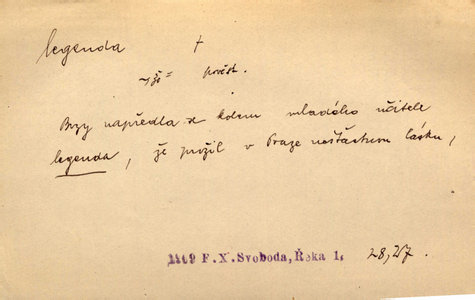 legenda +
~, že = pověst.
Brzy napředla se kolem mladého učitele
legenda, že prožil v Praze nešťastnou lásku,
1409 F. X. Svoboda, Řeka 1. 28, 27.